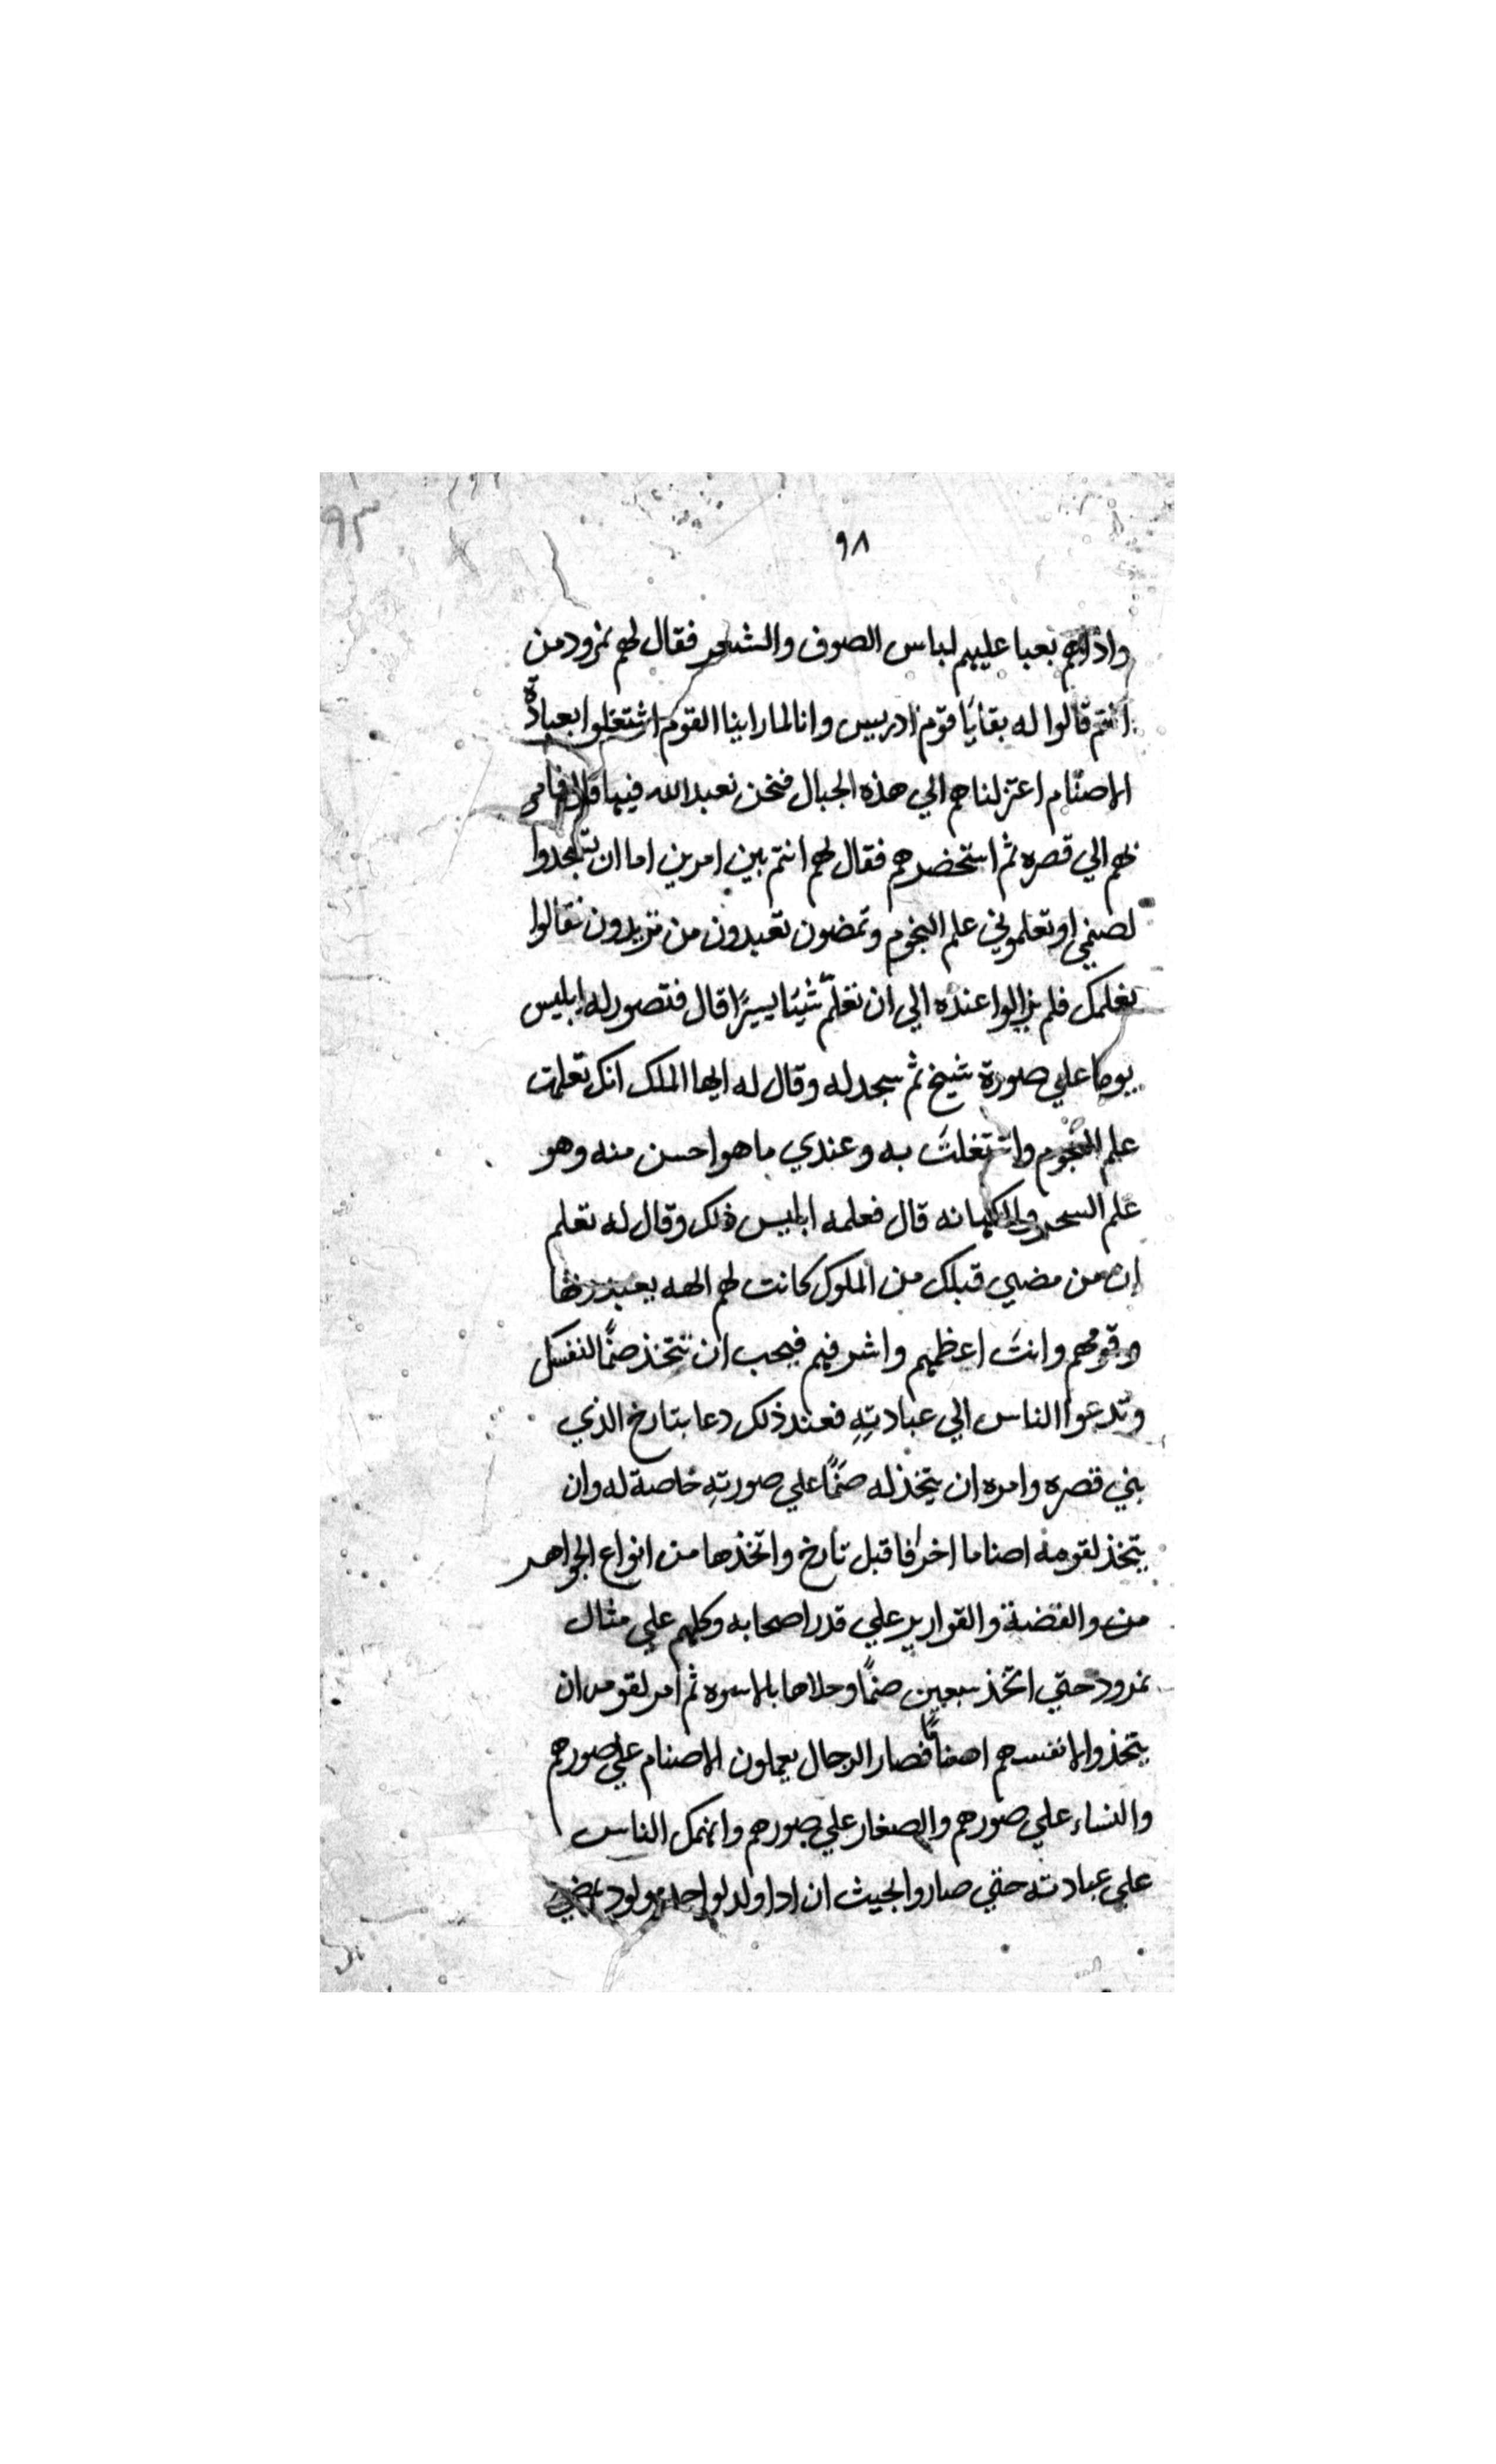 ٩٣
٩٨
واذاهم بعبا عليهم لباس الصوف والشعر فقال لهم نمرود من
انتم قالوا له بقايا قوم ادريس وانا لما راينا القوم اشتغلوا بعبادة
الاصنام اعتزلناهم الي هذه الجبال فنحن نعبد الله فيها قال فامر
بهم الي قصره ثم استحضرهم فقال لهم انتم بين امرين اما ان تسجدوا
لصنمي او تعلموني علم النجوم وتمضون تعبدون من تريدون فقالوا
نعلمك فلم يزالوا عنده الي ان تعلّم شيئا يسيرًا قال فتصور له ابليس
يوما علي صورة شيخ ثم سجد له وقال له ايها الملك انك تعلمت
علم النجوم واشتغلت به وعندي ما هو احسن منه وهو
علم السحر والكهانه قال فعلمه ابليس ذلك وقال له تعلم
ان من مضي قبلك من الملوك كانت لهم الهه يعبدونها
وقومهم وانت اعظمهم واشرفهم فيجب ان تتخذ صنمًا لنفسك
وتدعوا الناس الي عبادتهِ فعند ذلك دعا بتارخ الذي
بني قصره وامره ان يتخذ له صنمًا علي صورتهِ خاصة له وان
يتخذ لقومه اصناما اخر فاقبل تارخ واتخذها من انواع الجواهر
من والفضة والقوارير علي قدر اصحابه وكلهم علي مثال
نمرود حتي اتخذ سبعين صنمًا وحلاها بالاسوره ثم امر لقومه ان
يتخذوا لانفسهم اصنامًا فصار الرجال يعملون الاصنام علي صورهم
والنساء علي صورهم والصغار علي صورهم وانهمك الناس
علي عبادته حتي صاروا بحيث ان اذا ولد لواحد مولود